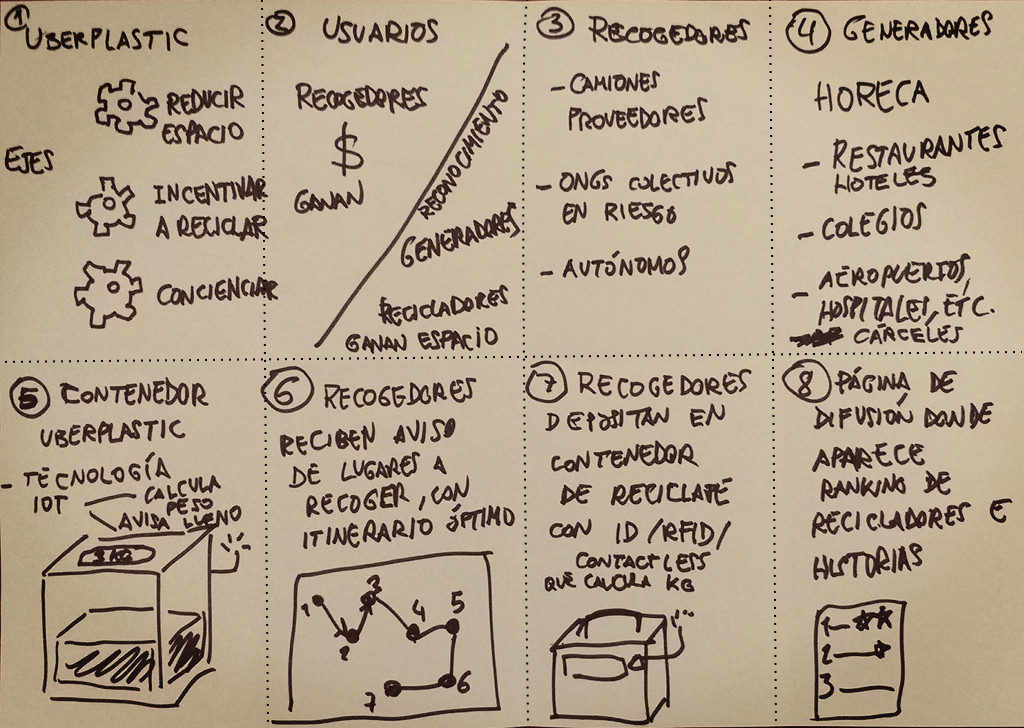 1 UBERPLASTIC
EJES
REDUCIR
ESPACIO
INCENTIVAR
A RECICLAR
CONCIENCIAR
2 USUARIOS
RECOGEDORES
$
GANAN
RECONOCIMIENTO
GENERADORES
RECICLADORES
GANAN ESPACIO
3 RECOGEDORES
- CAMIONES
PROVEEDORES
- ONGS COLECTIVOS
EN RIESGO
- AUTÓNOMOS
4 GENERADORES
HORECA
- RESTAURANTES
HOTELES
- COLEGIOS
- AEROPUERTOS,
HOSPITALES, ETC.
CÁRCELES
5 CONTENEDOR
UBERPLASTIC
- TECNOLOGÍA
IOT
CALCULA
PESO
AVISA LLENO
3 KG
6 RECOGEDORES
RECIBEN AVISO
DE LUGARES A
RECOGER, CON
ITINERARIO ÓPTIMO
1
2
3
4
5
6
7
7 RECOGEDORES
DEPOSITAN EN
CONTENEDOR
DE RECICLAJE
CON ID/RFID/
CONTACTLESS
QUE CALCULA KG
8 PÁGINA DE
DIFUSIÓN DONDE
APARECE
RANKING DE
RECICLADORES E
HISTORIAS
1
2
3